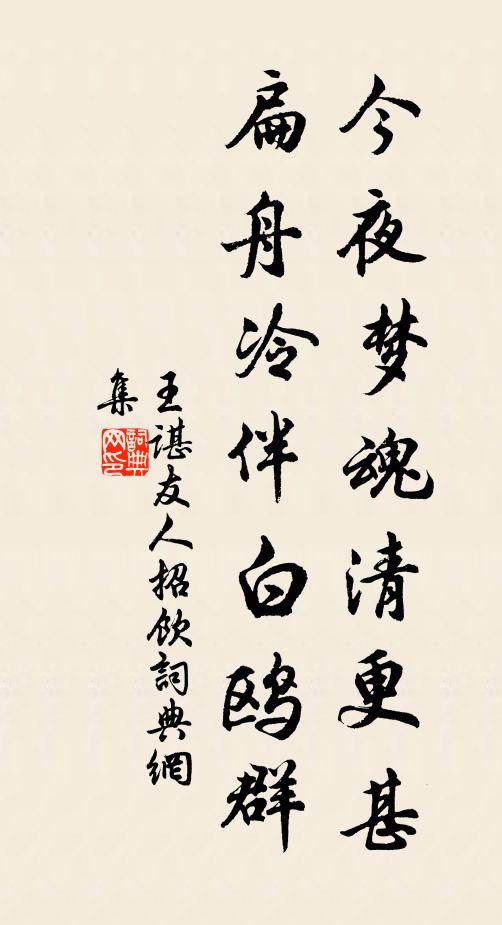 今夜梦魂清更甚
扁舟冷伴白鸥群
王谌友人招饮詞典網
集
詞典
网印